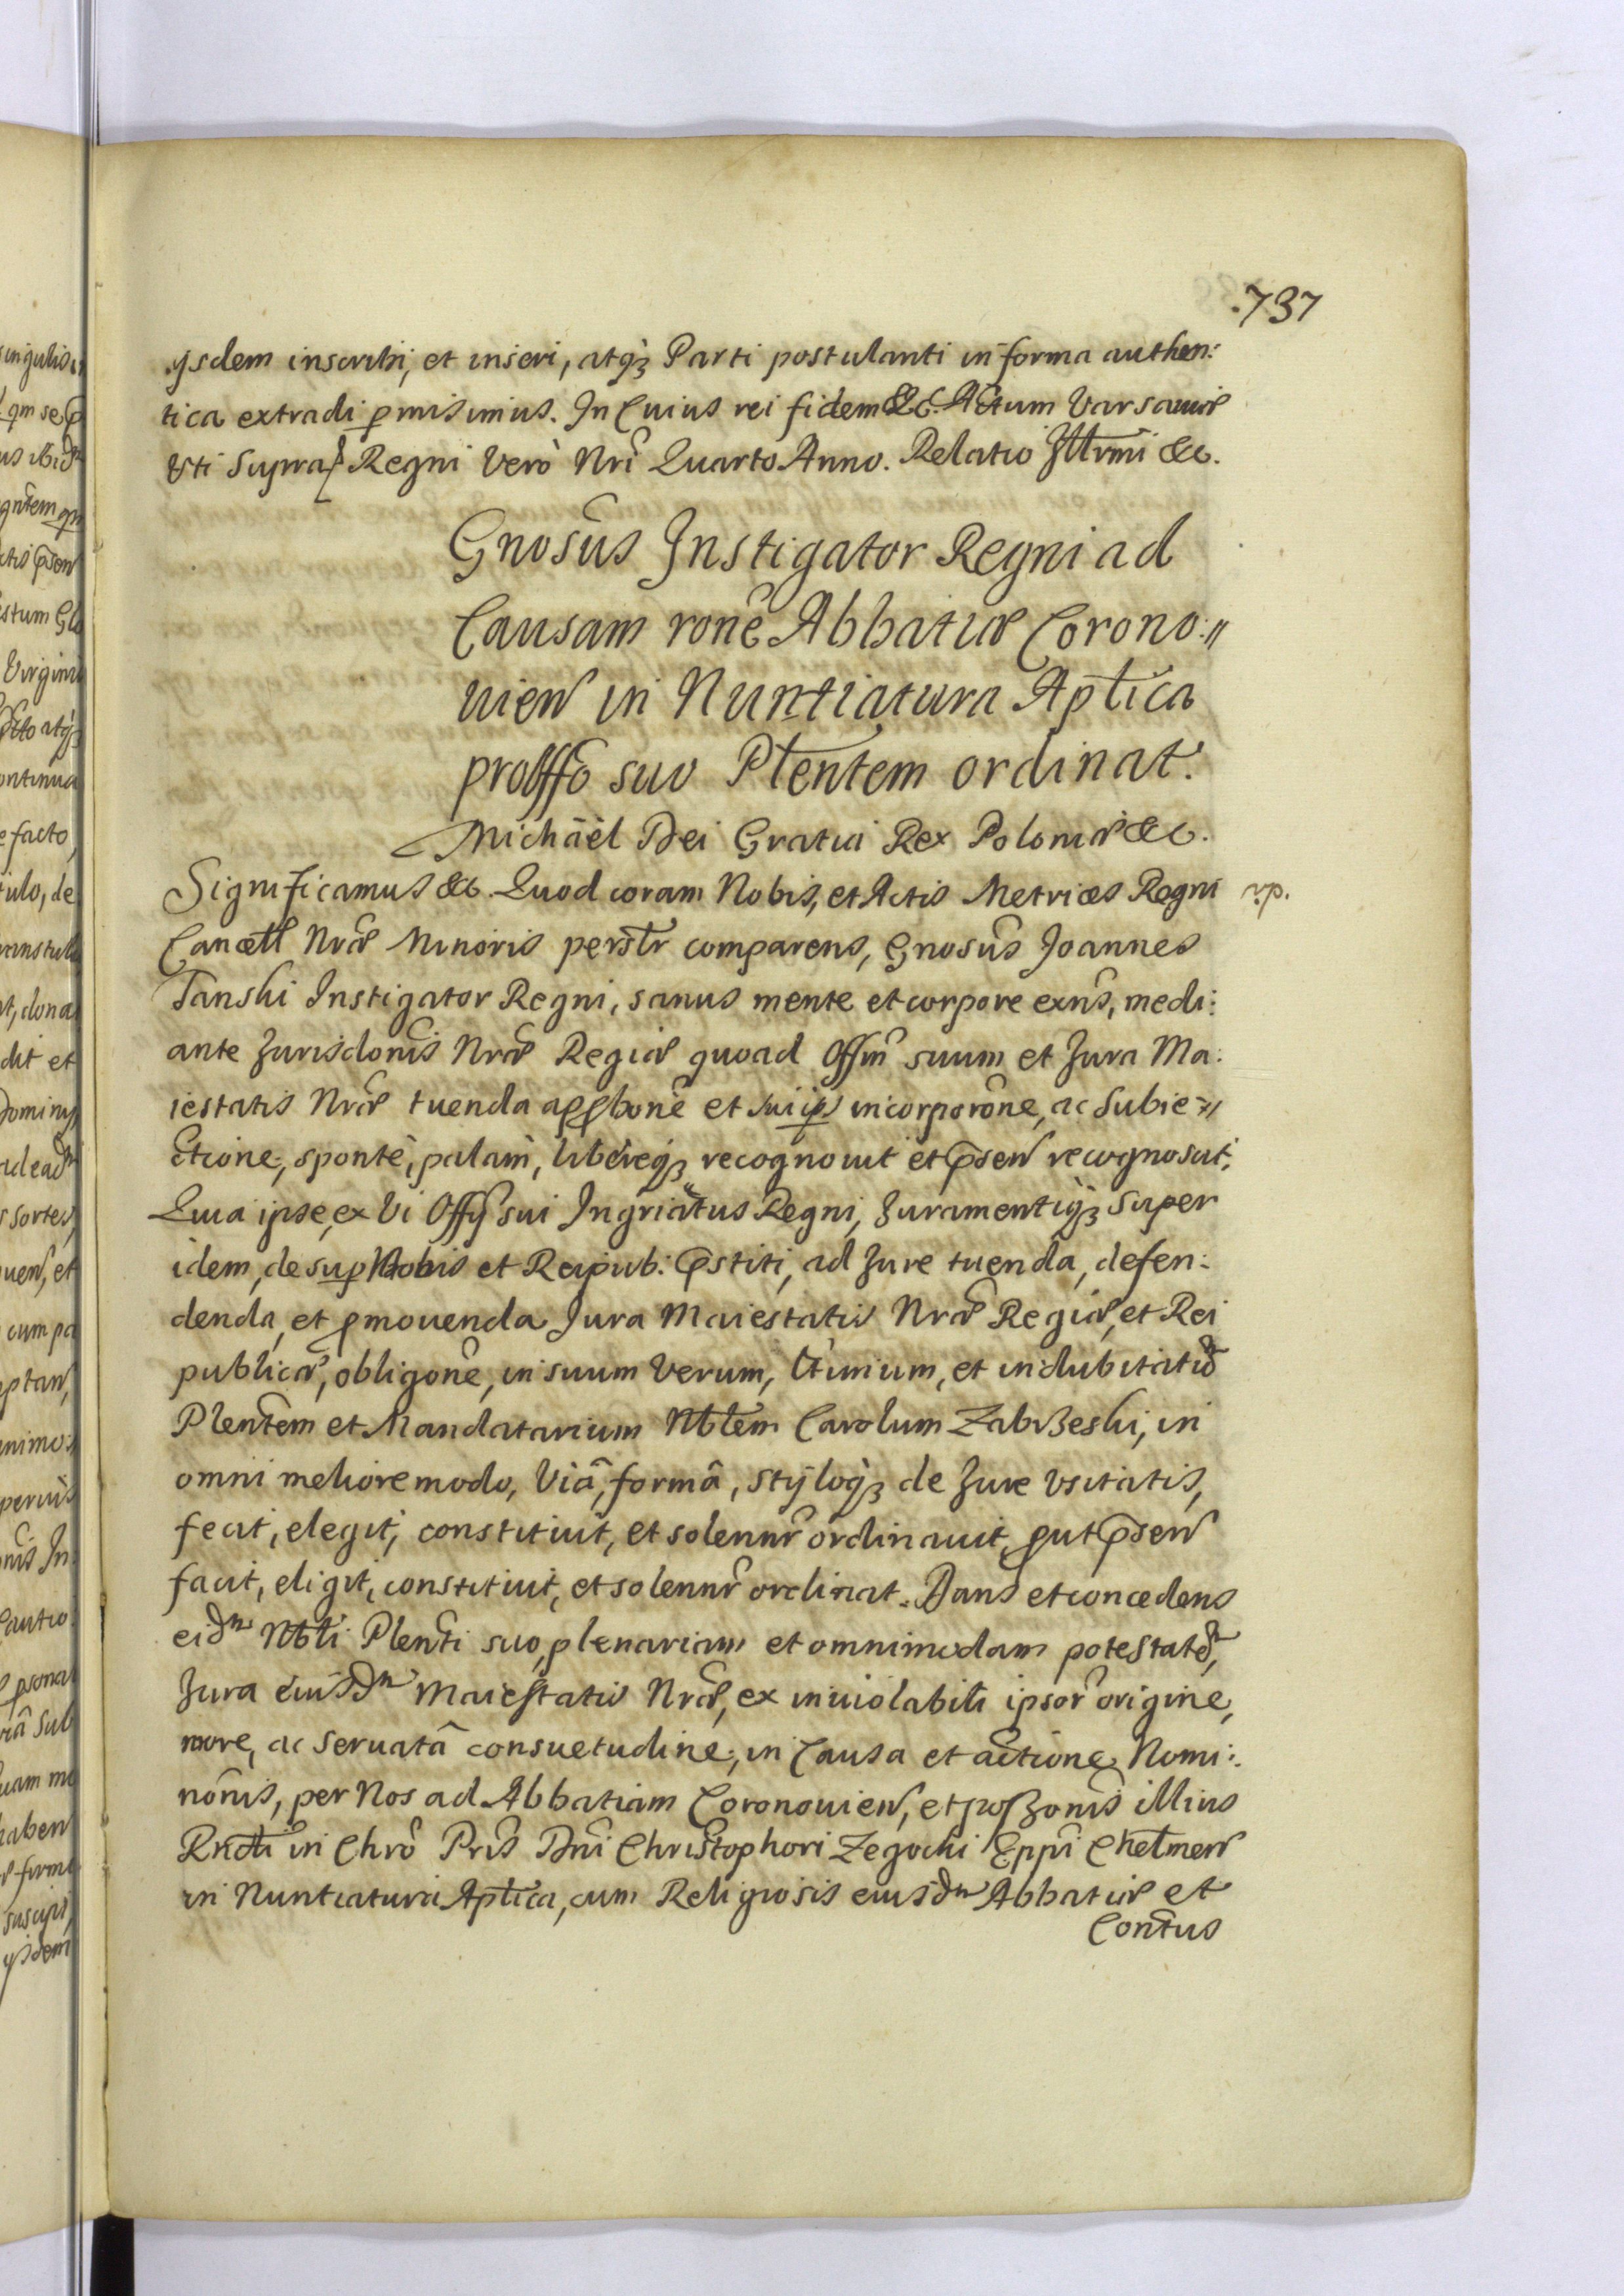 .737
ijsdem inscribi, et inseri, atqꝫ Parti postulanti in forma authen:
tica extradi ꝑmisimus. In Cuius rei fidem &c. Actum Varsaviæ
Vti Supra Regni Verò Nrĩ Quarto Anno. Relatio Illrmi &c.
Gnosũs Instigator Regni ad
Causam ronẽ Abbatiæ Corono:
uien in Nuntiatura Aptĩca
pro Offõ suo Pltentem ordinat.
Michaël Dei Gratia Rex Poloniæ &c.
Significamus &c. Quod coram Nobis, et Actis Metrices Regni
rp.
Cancell Nrẽ Minoris perstr comparens, Gnosũs Joannes
Tanski Instigator Regni, sanus mente et corpore exñs, medi:
ante Jurisdonis Nræ Regiæ quoad Offm suum et Jura Ma:
iestatis Nræ tuenda apꝓbone et sui incorporone, ac Subie
ctione, spontè, palàm, liberèqꝫ recognouit et p̃sen recognoscit,
Quia ipse, ex Vi Offij sui Ingriatus Regni, Juramentiqꝫ Super
idem, de sup Nobis et Reipub: p̃stiti, ad Jure tuenda, defen:
denda, et ꝓmouenda Jura Maiestatis Nræ Regiæ, et Rei
publicæ, obligone, in suum Verum, Ltimum, et indubitatũ
Plentem et Mandatarium Nblem Carolum Zabrzeski, in
omni meliore modo, Viâ, formâ, stÿloqꝫ de Jure Vsitatis,
fecit, elegit, constituit, et solennr ordinauit, ꝓut p̃sen
facit, eligit, constituit, et solennr ordinat. Dans et concedens
eidm Nbli Plenti suo, plenariam et omnimodam potestatẽ,
Jura eiusdm Maiestatis Nræ, ex inuiolabili ipsor origine,
more, ac Seruatâ consuetudine, in Causa et actione Nomi:
nonis, per Nos ad Abbatiam Coronouien, et poßonis illius
Rndi in Chrõ Pris Dni Christophori Zegocki Eppi Chelmen
in Nuntiatura Aptica, cum Religiosis eiusdm Abbatiæ et
Contus